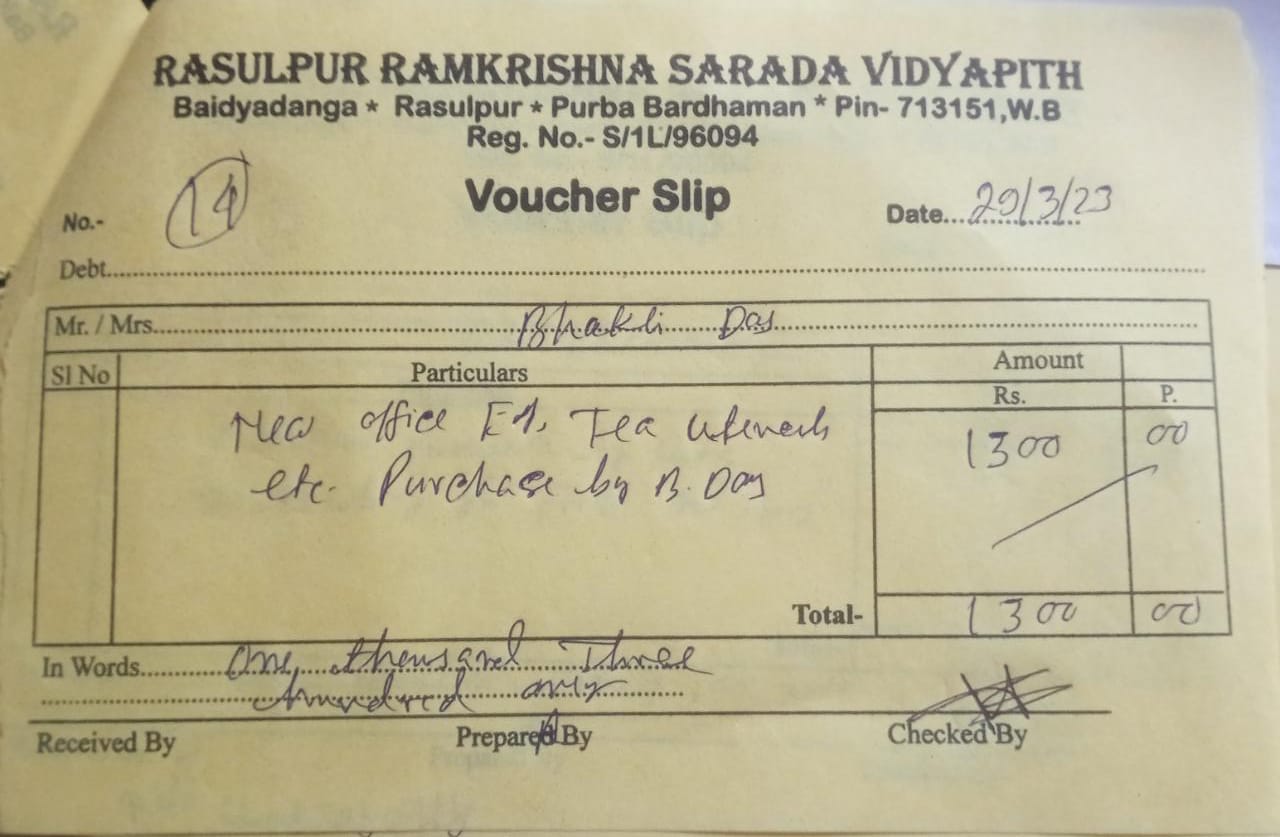 RASULPUR RAMKRISHNA SARADA VIDYAPITH
Baidyadanga * Rasulpur * Purba Bardhaman * Pin- 713151,W.B
Reg. No.- S/1L/96094
Voucher Slip
No.- 14 Date...29/3/23
Debt
Mr. / Mrs. Bhakti Das
Sl No Particulars Amount
Rs. P.
New office Tea utensils 1300 00
etc. Purchase by B. Das
Total- 1300 00
In Words One thousand Three
hundred only
Received By Prepared By Checked By